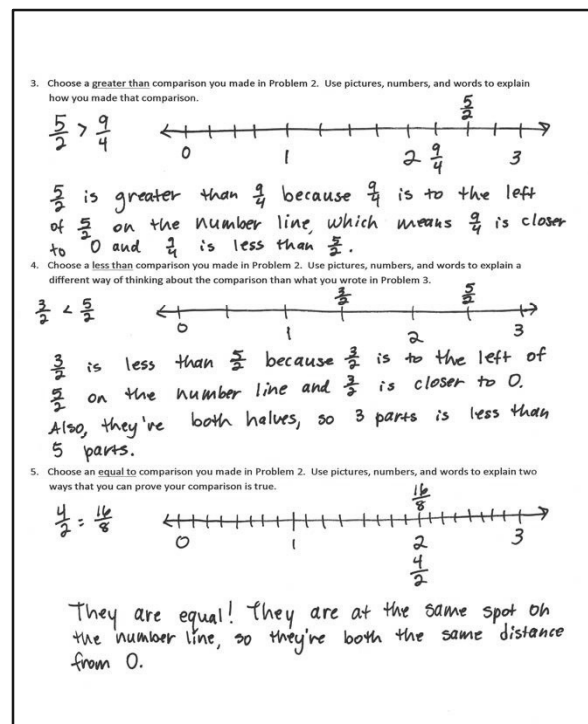 3. Choose a greater than comparison you made in Problem 2. Use pictures, numbers, and words to explain
how you made that comparison.
5/2 > 9/4
5/2
0 1 2 9/4 3
5/2 is greater than 9/4 because 9/4 is to the left
of 5/2 on the number line, which means 9/4 is closer
to 0 and 9/4 is less than 5/2.
4. Choose a less than comparison you made in Problem 2. Use pictures, numbers, and words to explain a
different way of thinking about the comparison than what you wrote in Problem 3.
3/2 < 5/2
3/2 5/2
0 1 2 3
3/2 is less than 5/2 because 3/2 is to the left of
5/2 on the number line and 3/2 is closer to 0.
Also, they're both halves, so 3 parts is less than
5 parts.
5. Choose an equal to comparison you made in Problem 2. Use pictures, numbers, and words to explain two
ways that you can prove your comparison is true.
4/2 = 16/8
16/8
0 1 2 3
4/2
They are equal! They are at the same spot on
the number line, so they're both the same distance
from 0.